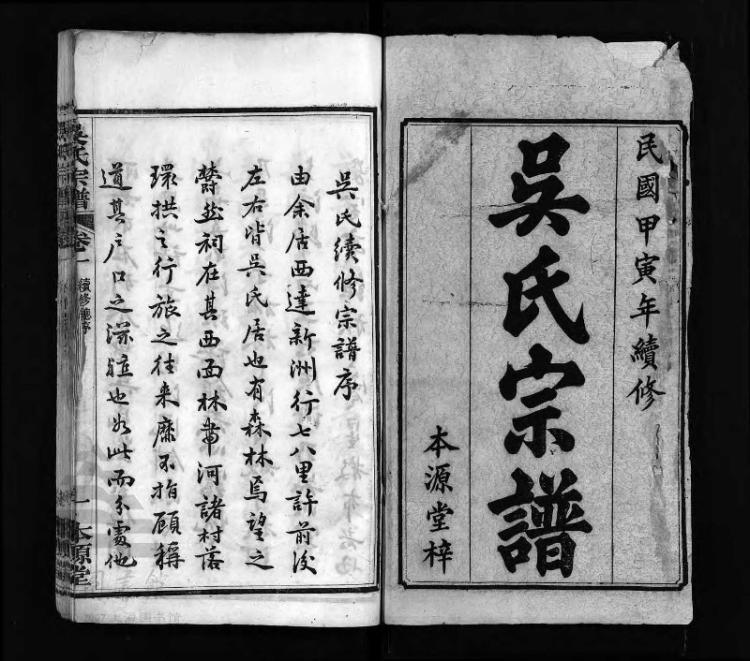 民國甲寅年續修
吳氏宗譜
本源堂梓
吳氏續修宗譜序
由余居西達新洲行七八里許前後
左右皆吳氏居也有森林焉望之
欝然祠在其西面林帶河諸村落
環拱之行旅之往來靡不指顧稱
道其戶口之深殖也如此而分處他
吳氏宗譜
卷一
續修總序
一
本源堂